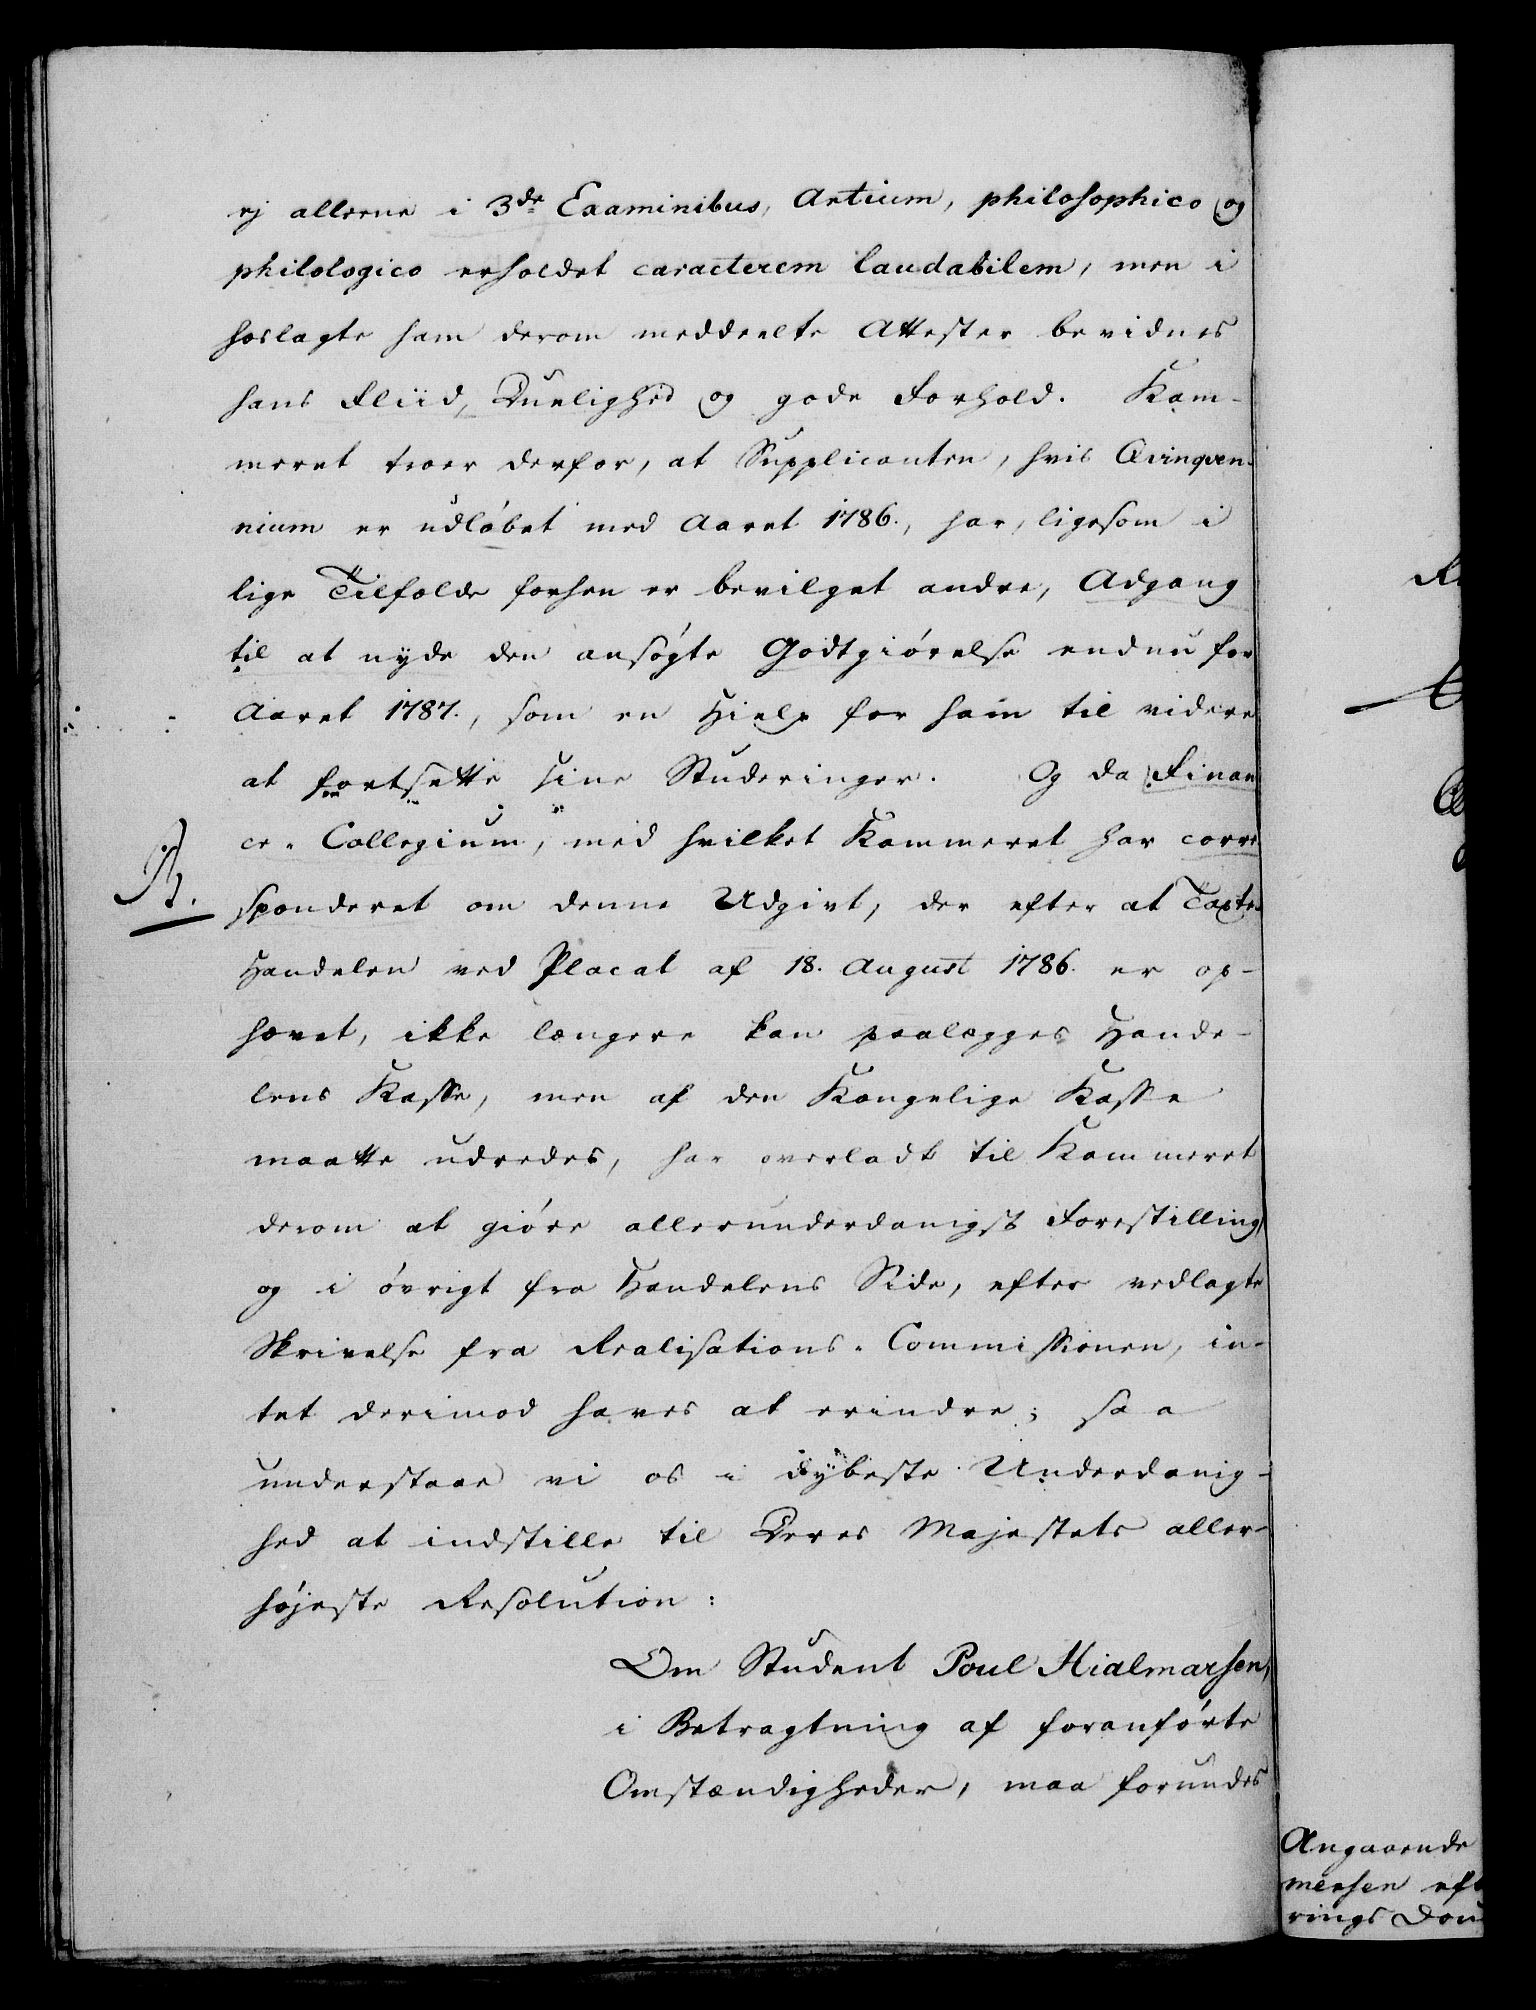 ej alleene i 3de Examinibus, Artium, philosophico og
philologico erholdet caracterem laudabilem, men i
hoslagte ham derom meddeelte Attester bevidnes
hans Fliid, Duelighed og gode Forhold. Kam-
meret troer derfor, at Supplicanten, hvis Qvinqven-
nium er udløbet med Aaret 1786., har, ligesom i
lige Tilfælde forhen er bevilget andre, Adgang
til at nyde den ansøgte Godtgiørelse endnu for
Aaret 1787., som en Hielp for ham til videre
at fortsætte sine Studeringer. Og da Finan
ce-Collegium, med hvilket Kammeret har corre
B.
sponderet om denne Udgivt, der efter at Taxt
Handelen ved Placat af 18. August 1786. er op-
hævet, ikke længere kan paalægges Hande-
lens Kasse, men af den Kongelige Kasse
maatte udredes, har overladt til Kammeret
derom at giøre allerunderdanigst Forestilling,
og i øvrigt fra Handelens Side, efter vedlagte
Skrivelse fra Realisations-Commissionen, in-
tet derimod haves at erindre; saa
understaae vi os i dybeste Underdanig-
hed at indstille til Deres Majestets aller-
højeste Resolution:
Om Student Poul Hialmarsen,
i Betragtning af foranførte
Omstændigheder, maa forundes
Angaaende
mersen eft
rings